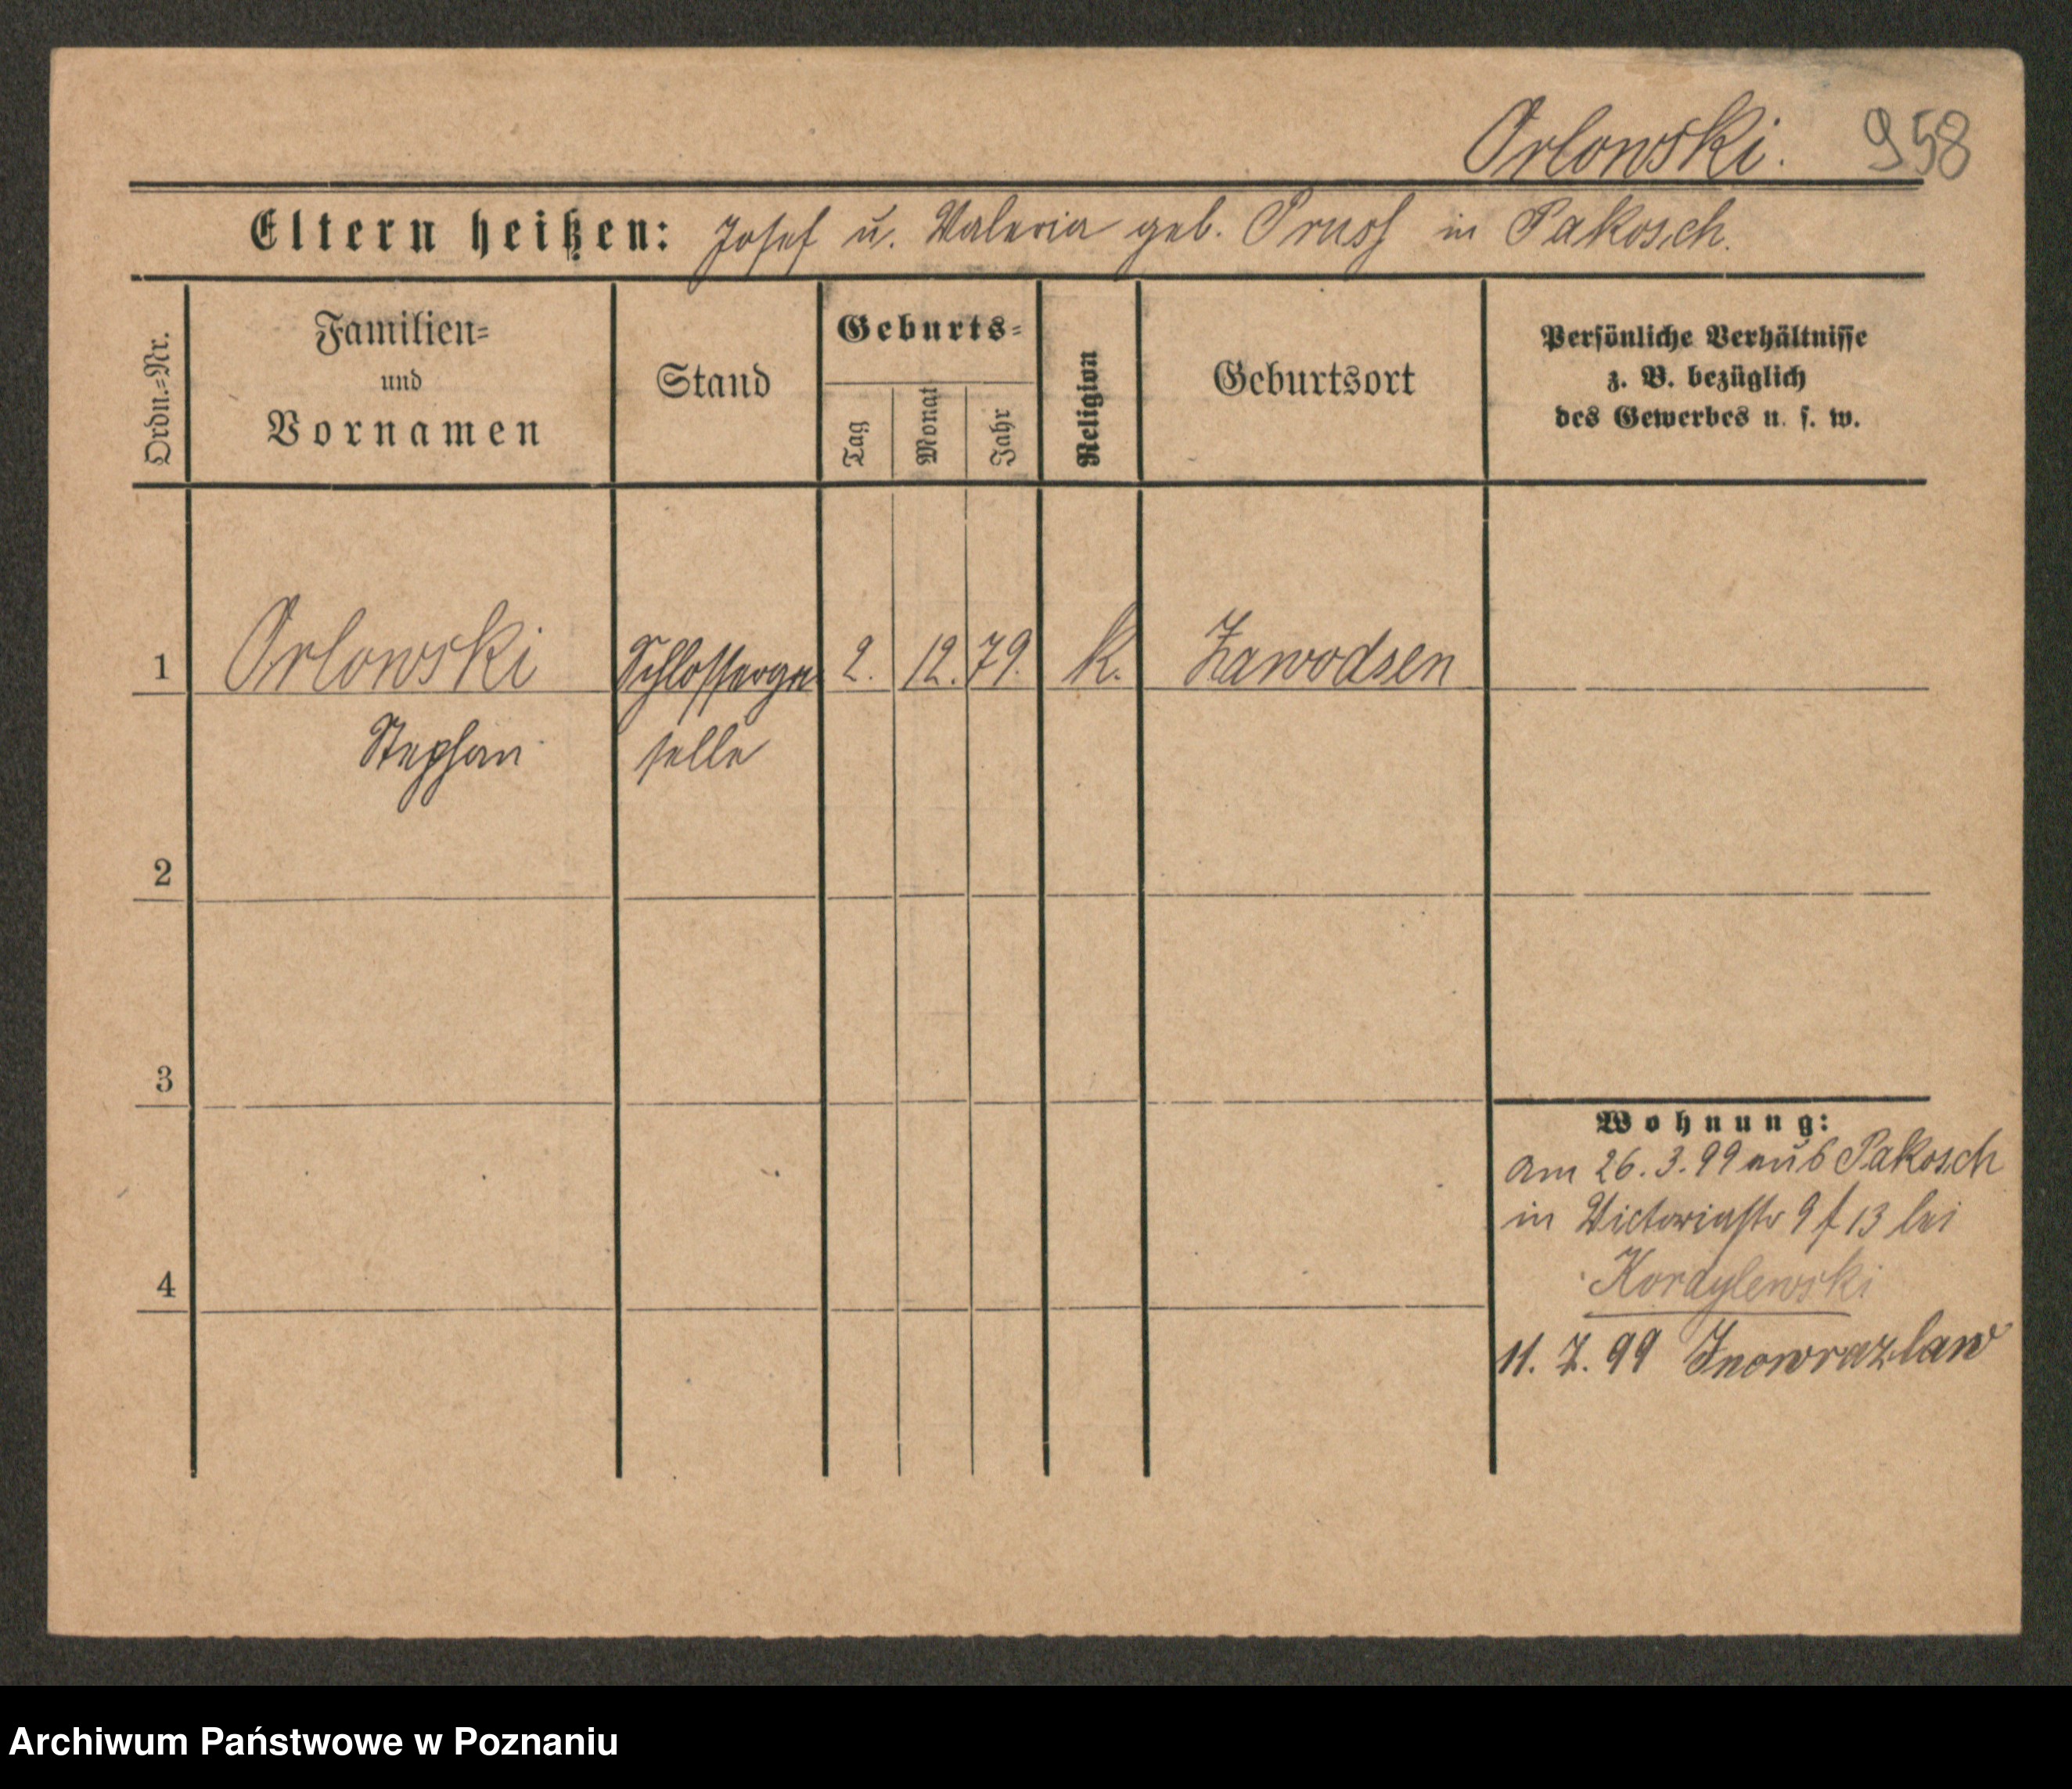 Orlowski. 958
Eltern heißen: Josef u. Valeria geb. Pruss in Pakosch.
Ordn.-Nr.
Familien-
und
Vornamen
Stand
Geburts-
Tag
Monat
Jahr
Religion
Geburtsort
Persönliche Verhältnisse
z. B. bezüglich
des Gewerbes u. s. w.
1 Orlowski Schlosserge 2. 12. 79. k. Zawodsen
Stephan selle
2
3
Wohnung:
am 26.3.99 aus Pakosch
in Victoriastr 9 f 13 bei
4 Kordylewski
11. 7. 99 Inowrazlaw
Archiwum Państwowe w Poznaniu